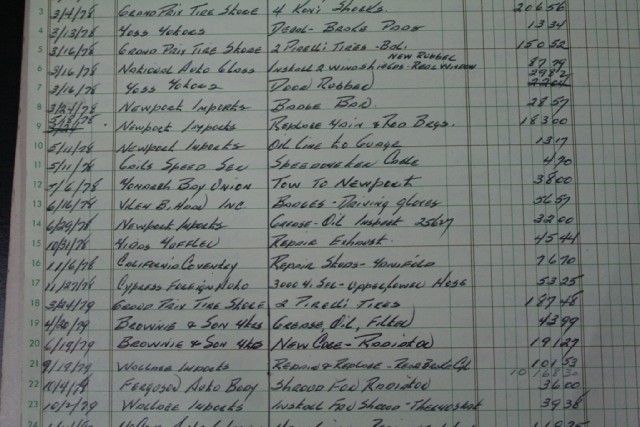 3 3/4/78 GRAND PRIX TIRE STORE 4 KONI SHOCKS. 20656
4 3/13/78 YOSS MOTORS DECAL - BRAKE PADS 1334
5 3/16/78 GRAND PRIX TIRE STORE 2 PIRELLI TIRES - BAL. 15052
NEW RUBBER
6 3/16/78 NATIONAL AUTO GLASS INSTALL 2 WINDSHIELDS - REAR WINDOW 8779
7 3/16/78 YOSS MOTORS DOOR RUBBER
8 3/24/78 NEWPORT IMPORTS BADGE BAR. 2857
9 5/18/78 NEWPORT IMPORTS REPLACE MAIN & ROD BRGS. 18300
10 5/11/78 NEWPORT IMPORTS OIL LINE TO GUAGE 1317
11 5/11/78 GAILS SPEED SER SPEEDOMETER CABLE 470
12 7/6/78 MONARCH BAY UNION TOW TO NEWPORT 3800
13 6/16/78 VILEM B. HAAN INC BADGES - DRIVING GLOVES 5657
14 6/29/78 NEWPORT IMPORTS GREASE - OIL INSPECT 25657 3200
15 10/31/78 MIDAS MUFFLER REPAIR EXHAUST. 4544
16 11/6/78 CALIFORNIA COVENTRY REPAIR STUDS - MANIFOLD 7670
17 11/27/78 CYPRESS FOREIGN AUTO 3000 MI. SER - UPPER & LOWER HOSE 5325
18 3/24/79 GRAND PRIX TIRE STORE 2 PIRELLI TIRES 18748
19 4/20/79 BROWNIE & SON MTRS GREASE, OIL, FILTER 4399
20 6/19/79 BROWNIE & SON MTRS NEW CORE - RADIATOR 19127
21 9/13/79 WALLACE IMPORTS REPAIR & REPLACE - REAR BRAKE CYL 10153
22 10/4/79 FERGUSON AUTO BODY SHROUD FOR RADIATOR 3600
23 10/2/79 WALLACE IMPORTS INSTALL FAN SHROUD - THERMOSTAT 3938
24